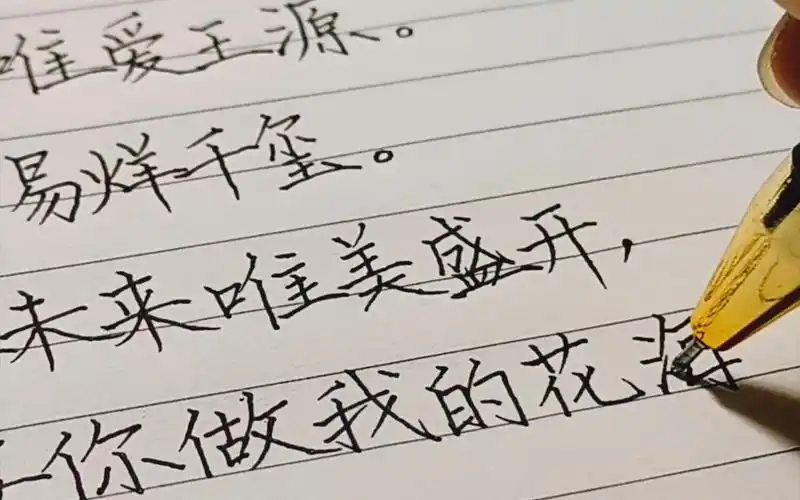 唯爱王源。
易烊千玺。
未来唯美盛开,
你做我的花海